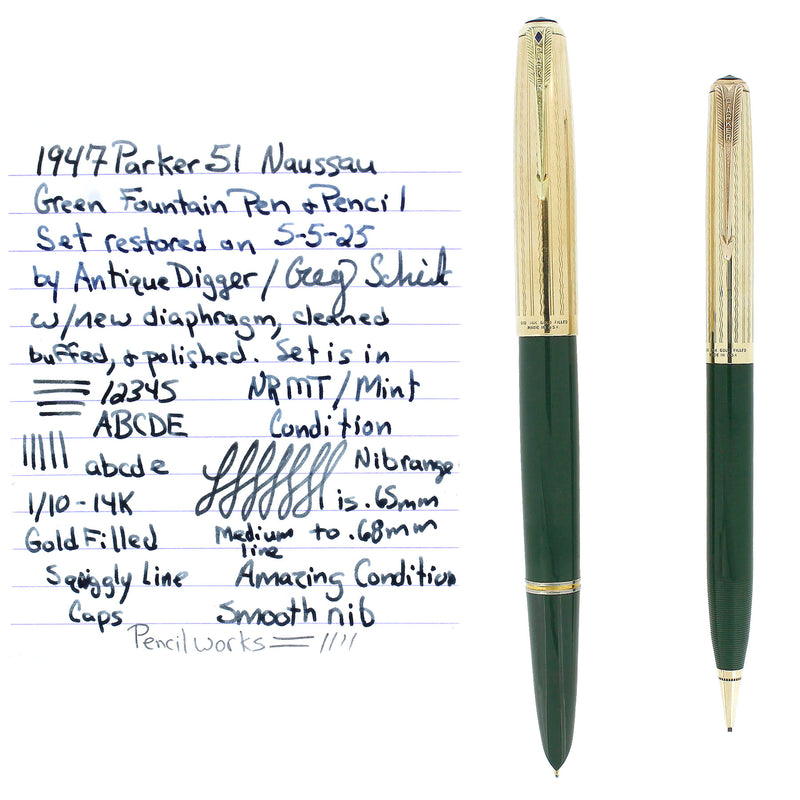 1947 Parker 51 Naussau
Green Fountain Pen & Pencil
Set restored on 5-5-25
by Antique Digger / Greg
w/new diaphragm, cleaned
buffed, & polished. Set is in
12345 NRMT / Mint
ABCDE Condition
abcde Nib range
1/10 - 14K is .65mm
Gold Filled Medium to .68mm
line
Squiggly Line Amazing Condition
Caps Smooth nib
Pencil works
14K GOLD FILLED
MADE IN U.S.A
GOLD FILLED
MADE IN U.S.A